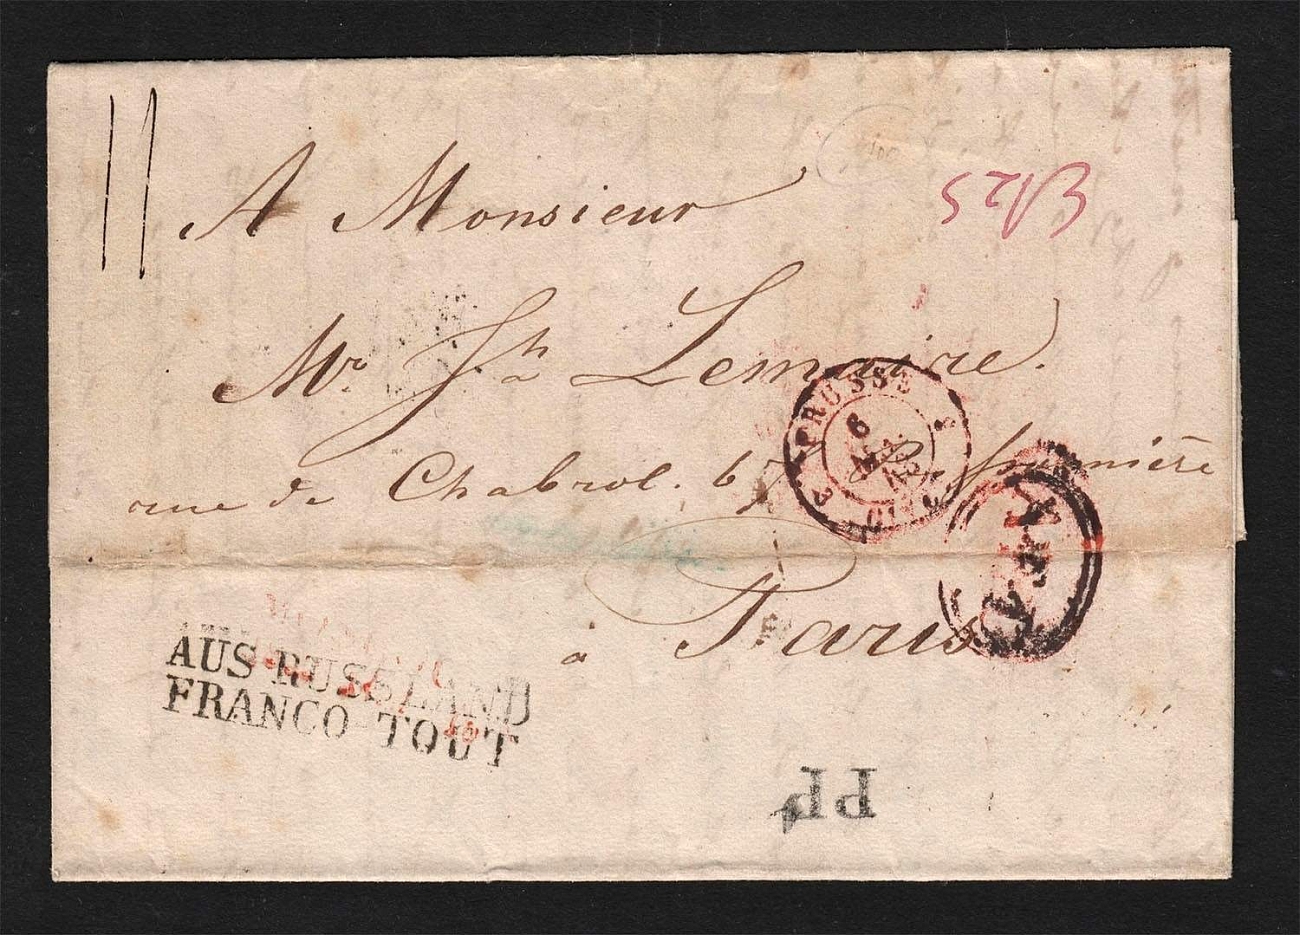 A Monsieur
Mr. Jh Lemaire.
rue de Chabrol. 67 Poissonnière
à Paris
PRUSSE
6
AUS RUSSLAND
FRANCO TOUT
PP